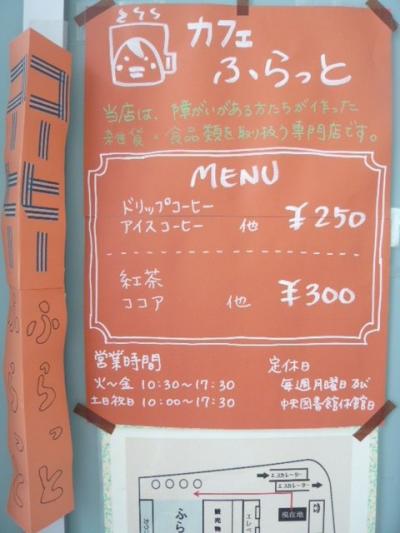 カフェ
ふらっと
当店は、障がいがある方たちが作った
雑貨・食品類を取り扱う専門店です。
MENU
ドリップコーヒー
アイスコーヒー 他 ¥250
紅茶
ココア 他 ¥300
営業時間
火〜金 10:30〜17:30
土日祝日 10:00〜17:30
定休日
毎週月曜日及び
中央図書館休館日
コーヒー
ふらっと
エスカレーター
エスカレーター
現在地
ふら
観光物
エレ
カウン